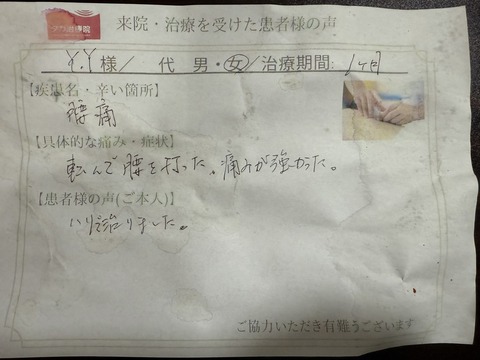 来院・治療を受けた患者様の声
Y.Y様/ 代 男・女/治療期間: 1ヶ月
【疾患名・辛い箇所】
腰痛
【具体的な痛み・症状】
転んで腰を打った。痛みが強かった。
【患者様の声(ご本人)】
ハリで治りました。
ご協力いただき有難うございます